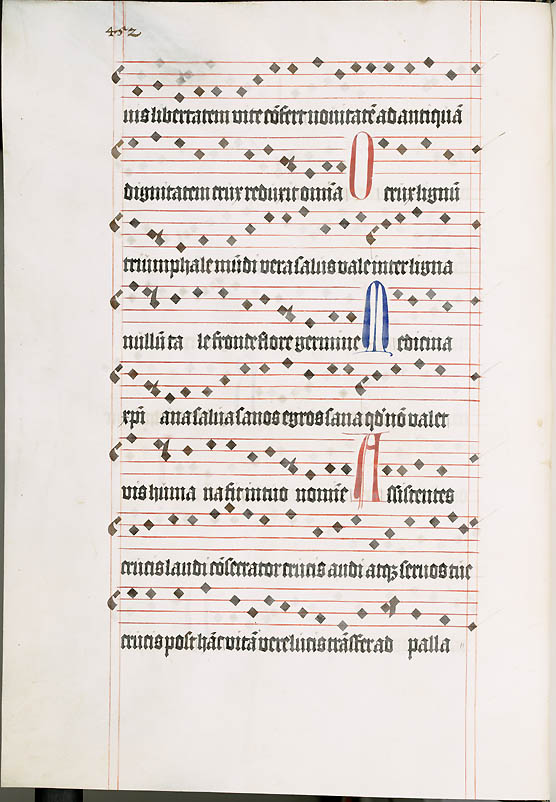 452
uis libertatem vite cōfert nouitatē ad antiquā
dignitatem crux reduxit omīa O crux lignū
triumphale mūdi vera salus vale inter ligna
nullū ta le fronde flore germine M edicina
xp̄i ana salua sanos egros sana qd' nō valet
vis huma na fit in tuo nomīe A ssistentes
crucis laudi cōsecrator crucis audi atqȝ seruos tue
crucis post hāc vitā vere lucis trāsfer ad palla